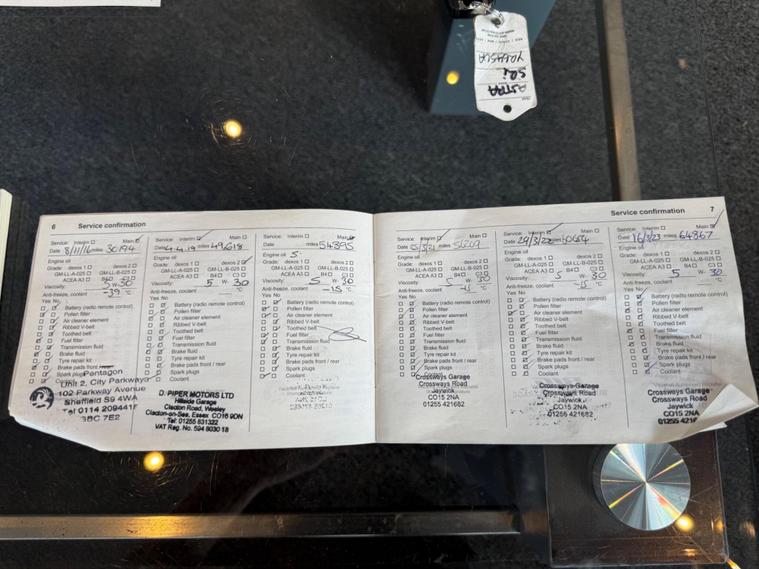 ASTRA
SRi
6 Service confirmation
Service: Interim Main
Date 8/11/16 miles 30194
Engine oil
Grade: dexos 1 dexos 2
GM-LL-A-025 GM-LL-B-025
ACEA A3 B4 C3
Viscosity: 5 W- 30
Anti-freeze, coolant -39 °C
Yes No
Battery (radio remote control)
Pollen filter
Air cleaner element
Ribbed V-belt
Toothed belt
Fuel filter
Transmission fluid
Brake fluid
Tyre repair kit
Brake pads front / rear
Spark plugs
Pentagon
Unit 2, City Parkway
102 Parkway Avenue
Sheffield S9 4WA
Tel 0114 209441
Service: Interim Main
Date 4.4.19 miles 49618
Engine oil
Grade: dexos 1 dexos 2
GM-LL-A-025 GM-LL-B-025
ACEA A3 B4 C3
Viscosity: 5 W- 30
Anti-freeze, coolant °C
Yes No
Battery (radio remote control)
Pollen filter
Air cleaner element
Ribbed V-belt
Toothed belt
Fuel filter
Transmission fluid
Brake fluid
Tyre repair kit
Brake pads front / rear
Spark plugs
Coolant
D. PIPER MOTORS LTD
Hillside Garage
Clacton Road, Weeley
Clacton-on-Sea, Essex CO16 9DN
Tel: 01255 831322
VAT Reg. No. 594 8030 18
Service: Interim Main
Date miles 54395
Engine oil 5
Grade: dexos 1 dexos 2
GM-LL-A-025 GM-LL-B-025
ACEA A3 B4 C3
Viscosity: 5 W- 30
Anti-freeze, coolant -15 °C
Yes No
Battery (radio remote control)
Pollen filter
Air cleaner element
Ribbed V-belt
Toothed belt
Fuel filter
Transmission fluid
Brake fluid
Tyre repair kit
Brake pads front / rear
Spark plugs
Coolant
Service confirmation 7
Service: Interim Main
Date miles 56209
Engine oil
Grade: dexos 1 dexos 2
GM-LL-A-025 GM-LL-B-025
ACEA A3 B4 C3
Viscosity: 5 W- 30
Anti-freeze, coolant -15 °C
Yes No
Battery (radio remote control)
Pollen filter
Air cleaner element
Ribbed V-belt
Toothed belt
Fuel filter
Transmission fluid
Brake fluid
Tyre repair kit
Brake pads front / rear
Spark plugs
Crossways Garage
Crossways Road
Jaywick
CO15 2NA
01255 421682
Service: Interim Main
Date 29/3/22 60654
Engine oil
Grade: dexos 1 dexos 2
GM-LL-A-025 GM-LL-B-025
ACEA A3 B4 C3
Viscosity: 5 W- 30
Anti-freeze, coolant -15 °C
Yes No
Battery (radio remote control)
Pollen filter
Air cleaner element
Ribbed V-belt
Toothed belt
Fuel filter
Transmission fluid
Brake fluid
Tyre repair kit
Brake pads front / rear
Spark plugs
Coolant
Crossways Garage
Crossways Road
Jaywick
CO15 2NA
01255 421682
Service: Interim Main
Date 16/3/23 miles 64867
Engine oil
Grade: dexos 1 dexos 2
GM-LL-A-025 GM-LL-B-025
ACEA A3 B4 C3
Viscosity: 5 W- 30
Anti-freeze, coolant °C
Yes No
Battery (radio remote control)
Pollen filter
Air cleaner element
Ribbed V-belt
Toothed belt
Fuel filter
Transmission fluid
Brake fluid
Tyre repair kit
Brake pads front / rear
Spark plugs
Coolant
Crossways Garage
Crossways Road
Jaywick
CO15 2NA